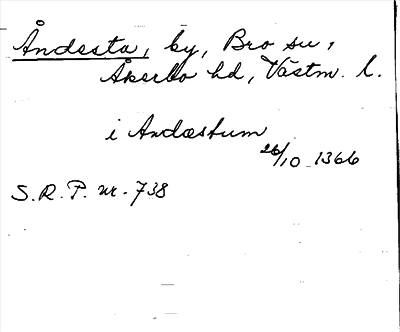 Åndesta, by, Bro sn,
Åkerbo hd, Västm. l.
i Andæstum
26/10 1366
S.R.P. nr. 738